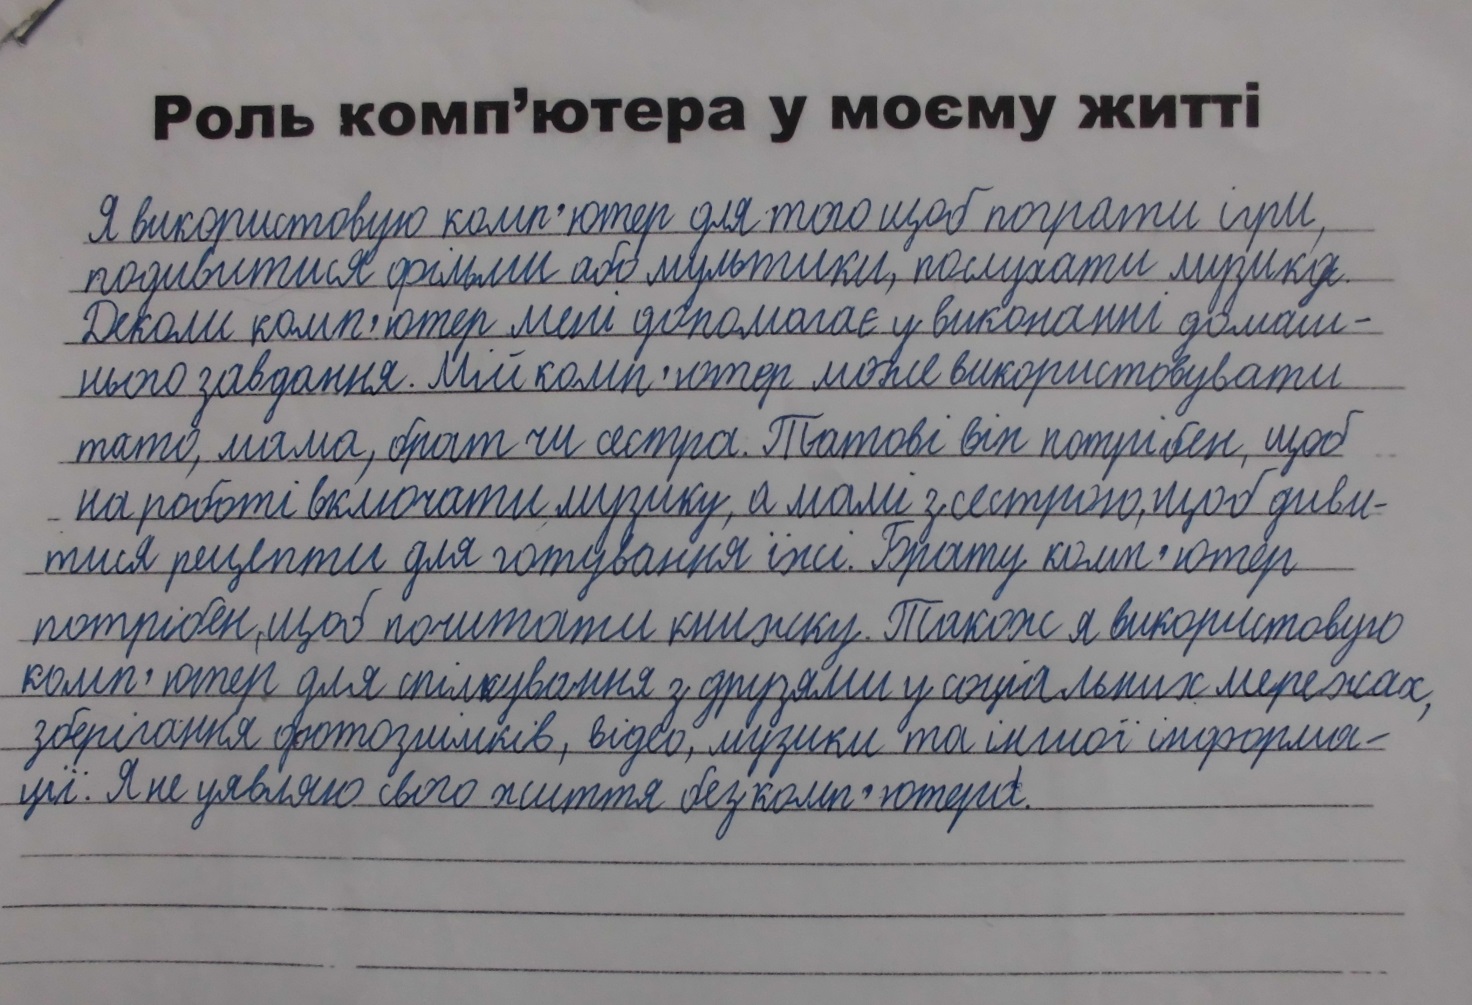 Роль комп'ютера у моєму житті
Я використовую комп'ютер для того щоб пограти ігри,
подивитися фільми або мультики, послухати музика.
Деколи комп'ютер мені допомагає у виконанні домаш-
нього завдання. Мій комп'ютер може використовувати
тато, мама, брат чи сестра. Татові він потрібен, щоб
на роботі включати музику, а мамі з сестрою, щоб диви-
тися рецепти для готування їжі. Брату комп'ютер
потрібен, щоб почитати книжку. Також я використовую
комп'ютер для спілкування з друзями у соціальних мережах,
зберігання фотознімків, відео, музики та іншої інформа-
ції. Я не уявляю свого життя без комп'ютера.